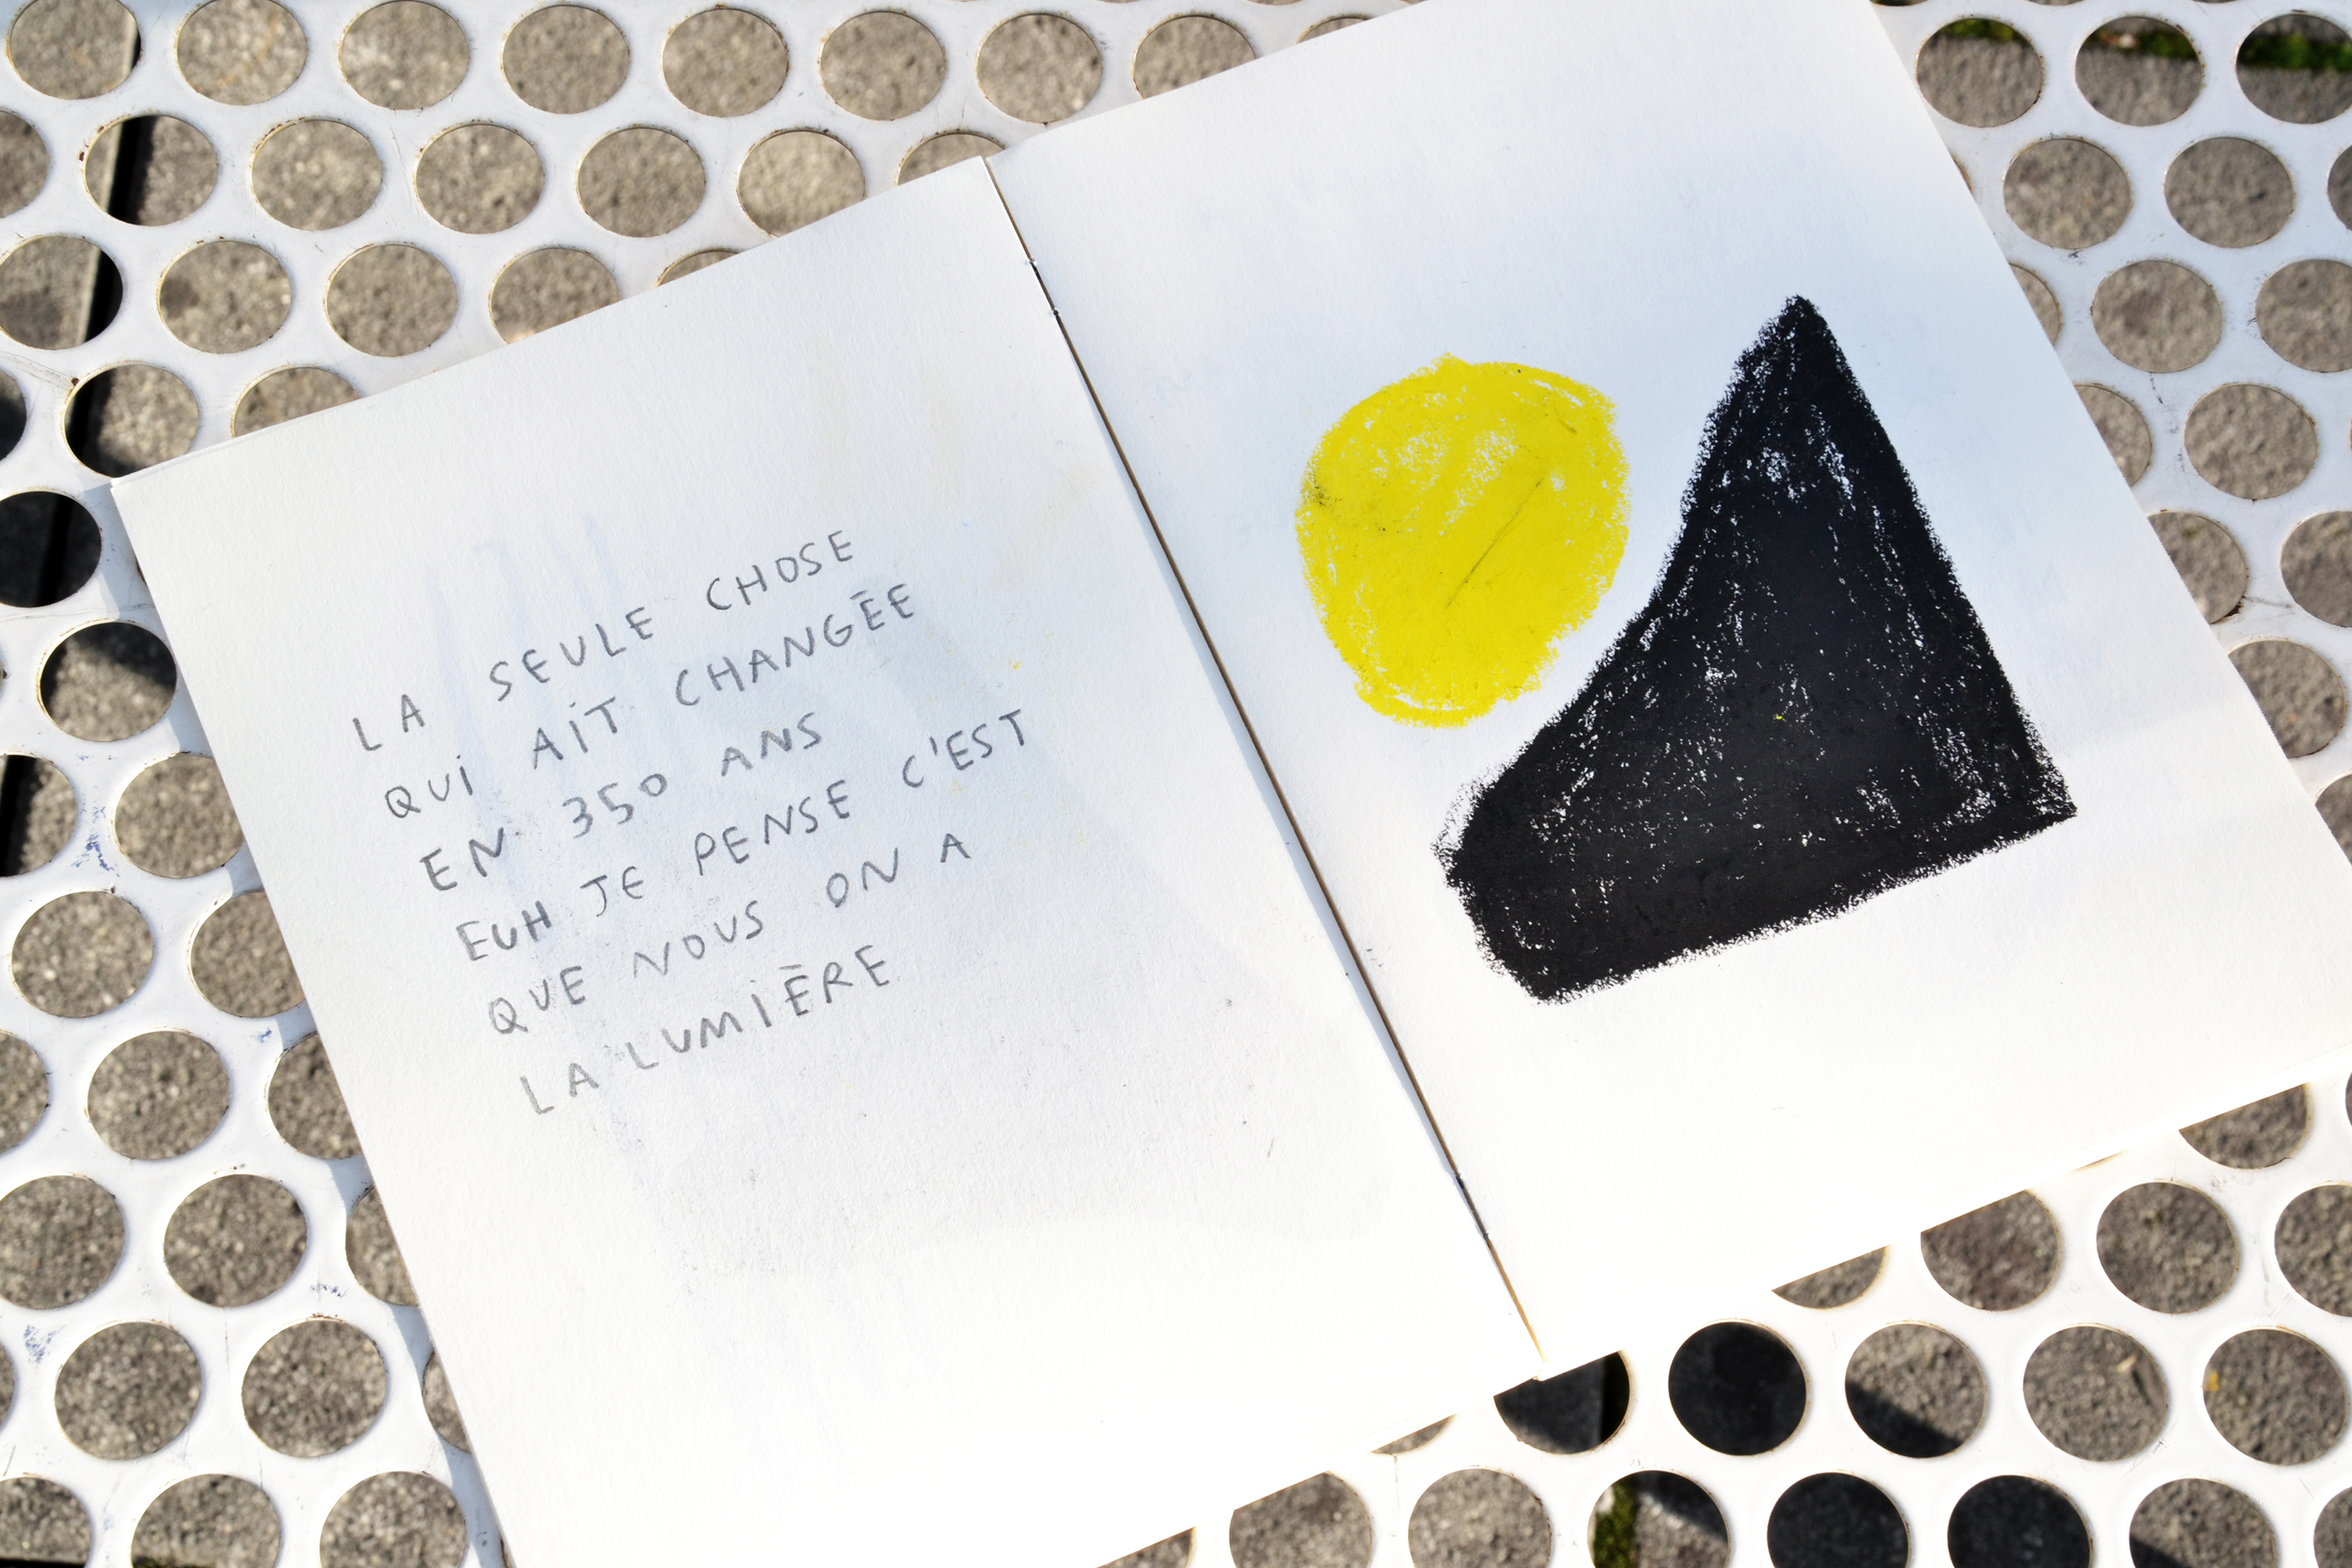 LA SEULE CHOSE
QUi AiT CHANGÉE
EN 350 ANS
EUH JE PENSE C'EST
QUE NOUS ON A
LA LUMiÈRE